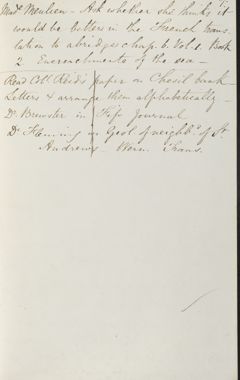 Mad. Meulien - Ask whether she thinks it
would be better in the French trans
lation to abridge chap. 6. Vol. 1. Book
2 Encroachments of the sea -
Read Coll Reid's paper on Chesil bank
Letters & arrange them alphabetically -
Dr Brewster in Journal
Dr Fleming on Geol of neighbd. of St.
Andrews. Wern. Trans.